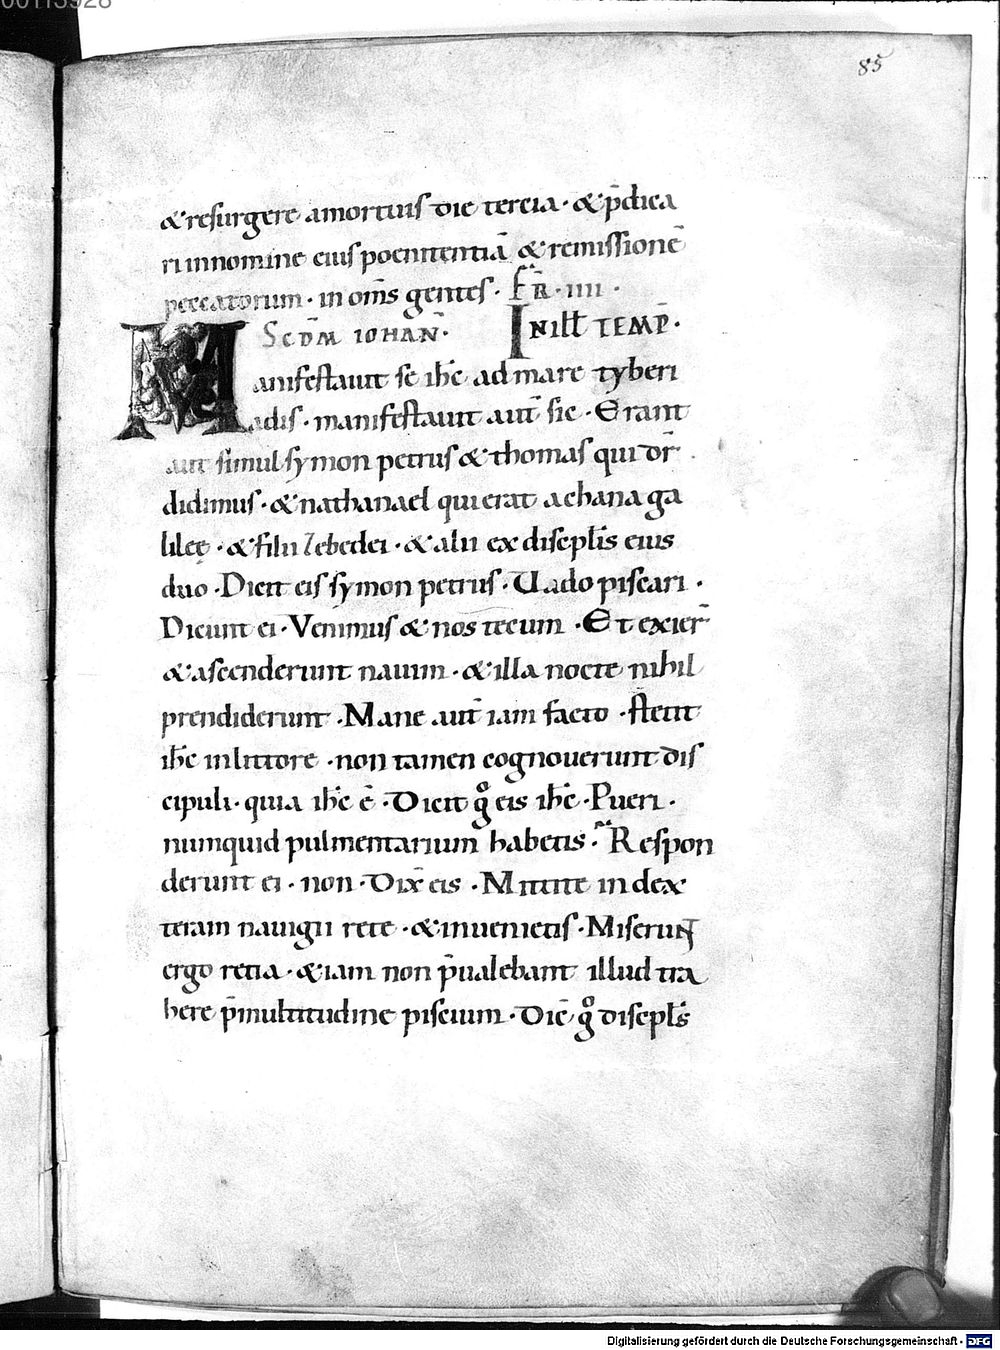 00113928
85
&resurgere amortuis die tercia · &p̄dica
ri innomine eius poenitentiā & remissionē
peccatorum · in om̄s gentes · F̄R · IIII ·
SCDM IOHAÑ · INILL̄ TEMP̄ ·
Manifestauit se ih̄c ad mare tyberi
adis · manifestauit aut̄ sic · Erant
aut̄ simul symon petrus & thomas qui dr̄
didimus · & nathanael qui erat achana ga
lileę · & filii zebedei · & alii ex discipl̄is eius
duo · Dicit eis symon petrus · Uado piscari ·
Dicunt ei · Venimus & nos tecum · Et exier̄
& ascenderunt nauim · & illa nocte nihil
prendiderunt · Mane aut̄ iam facto · stetit
ih̄c inlittore · non tamen cognouerunt dis
cipuli · quia ih̄c ē · Dicit gͦ eis ih̄c · Pueri ·
numquid pulmentarium habetis · Respon
derunt ei · non · Dix̄ eis · Mittite in dex
teram nauigii rete · & inuenietis · Miserunt
ergo retia · & iam non p̄ualebant illud tra
here p̄ multitudine piscium · Dic̄ gͦ discipl̄s
Digitalisierung gefördert durch die Deutsche Forschungsgemeinschaft - DFG